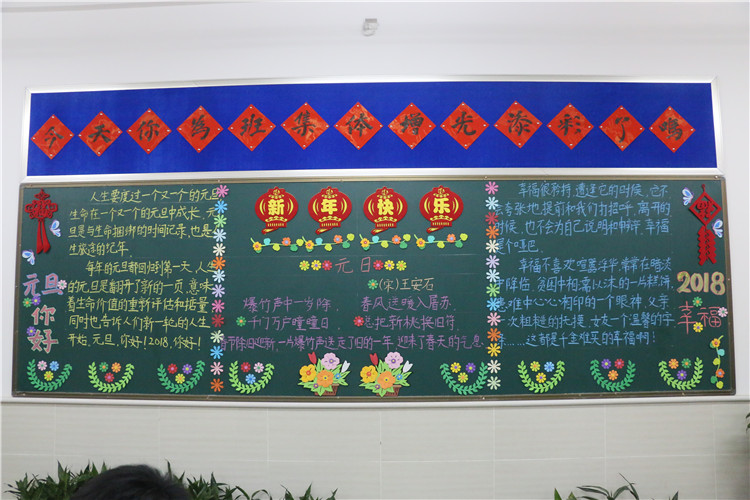 今天你为班集体增光添彩了吗
元旦你好
人生要度过一个又一个的元旦
生命在一个又一个的元旦中成长,元
旦是与生命捆绑的时间记录,也是
生旅途的记年
每年的元旦都回归到第一天,人生
的元旦是翻开了新的一页,意味
着生命价值的重新评估和掂量
同时也告诉人们新一轮的人生
开始,元旦,你好!2018,你好!
新年快乐
元日
(宋)王安石
爆竹声中一岁除
春风送暖入屠苏
千门万户曈曈日
总把新桃换旧符
春节除旧迎新一片爆竹声送走了旧的一年,迎来了春天的气息
幸福很矜持,遭逢它的时候,它不
夸张地提前和我们打招呼,离开的
时候,也不会为自己说明和申辩,幸福
是个哑巴.
幸福不喜欢喧嚣浮华,常常在暗淡
中降临,贫困中相濡以沫的一块糕饼
患难中心心相印的一个眼神,父亲
一次粗糙的抚摸,女友一个温馨的字
条……这都是千金难买的幸福啊!
2018
幸福